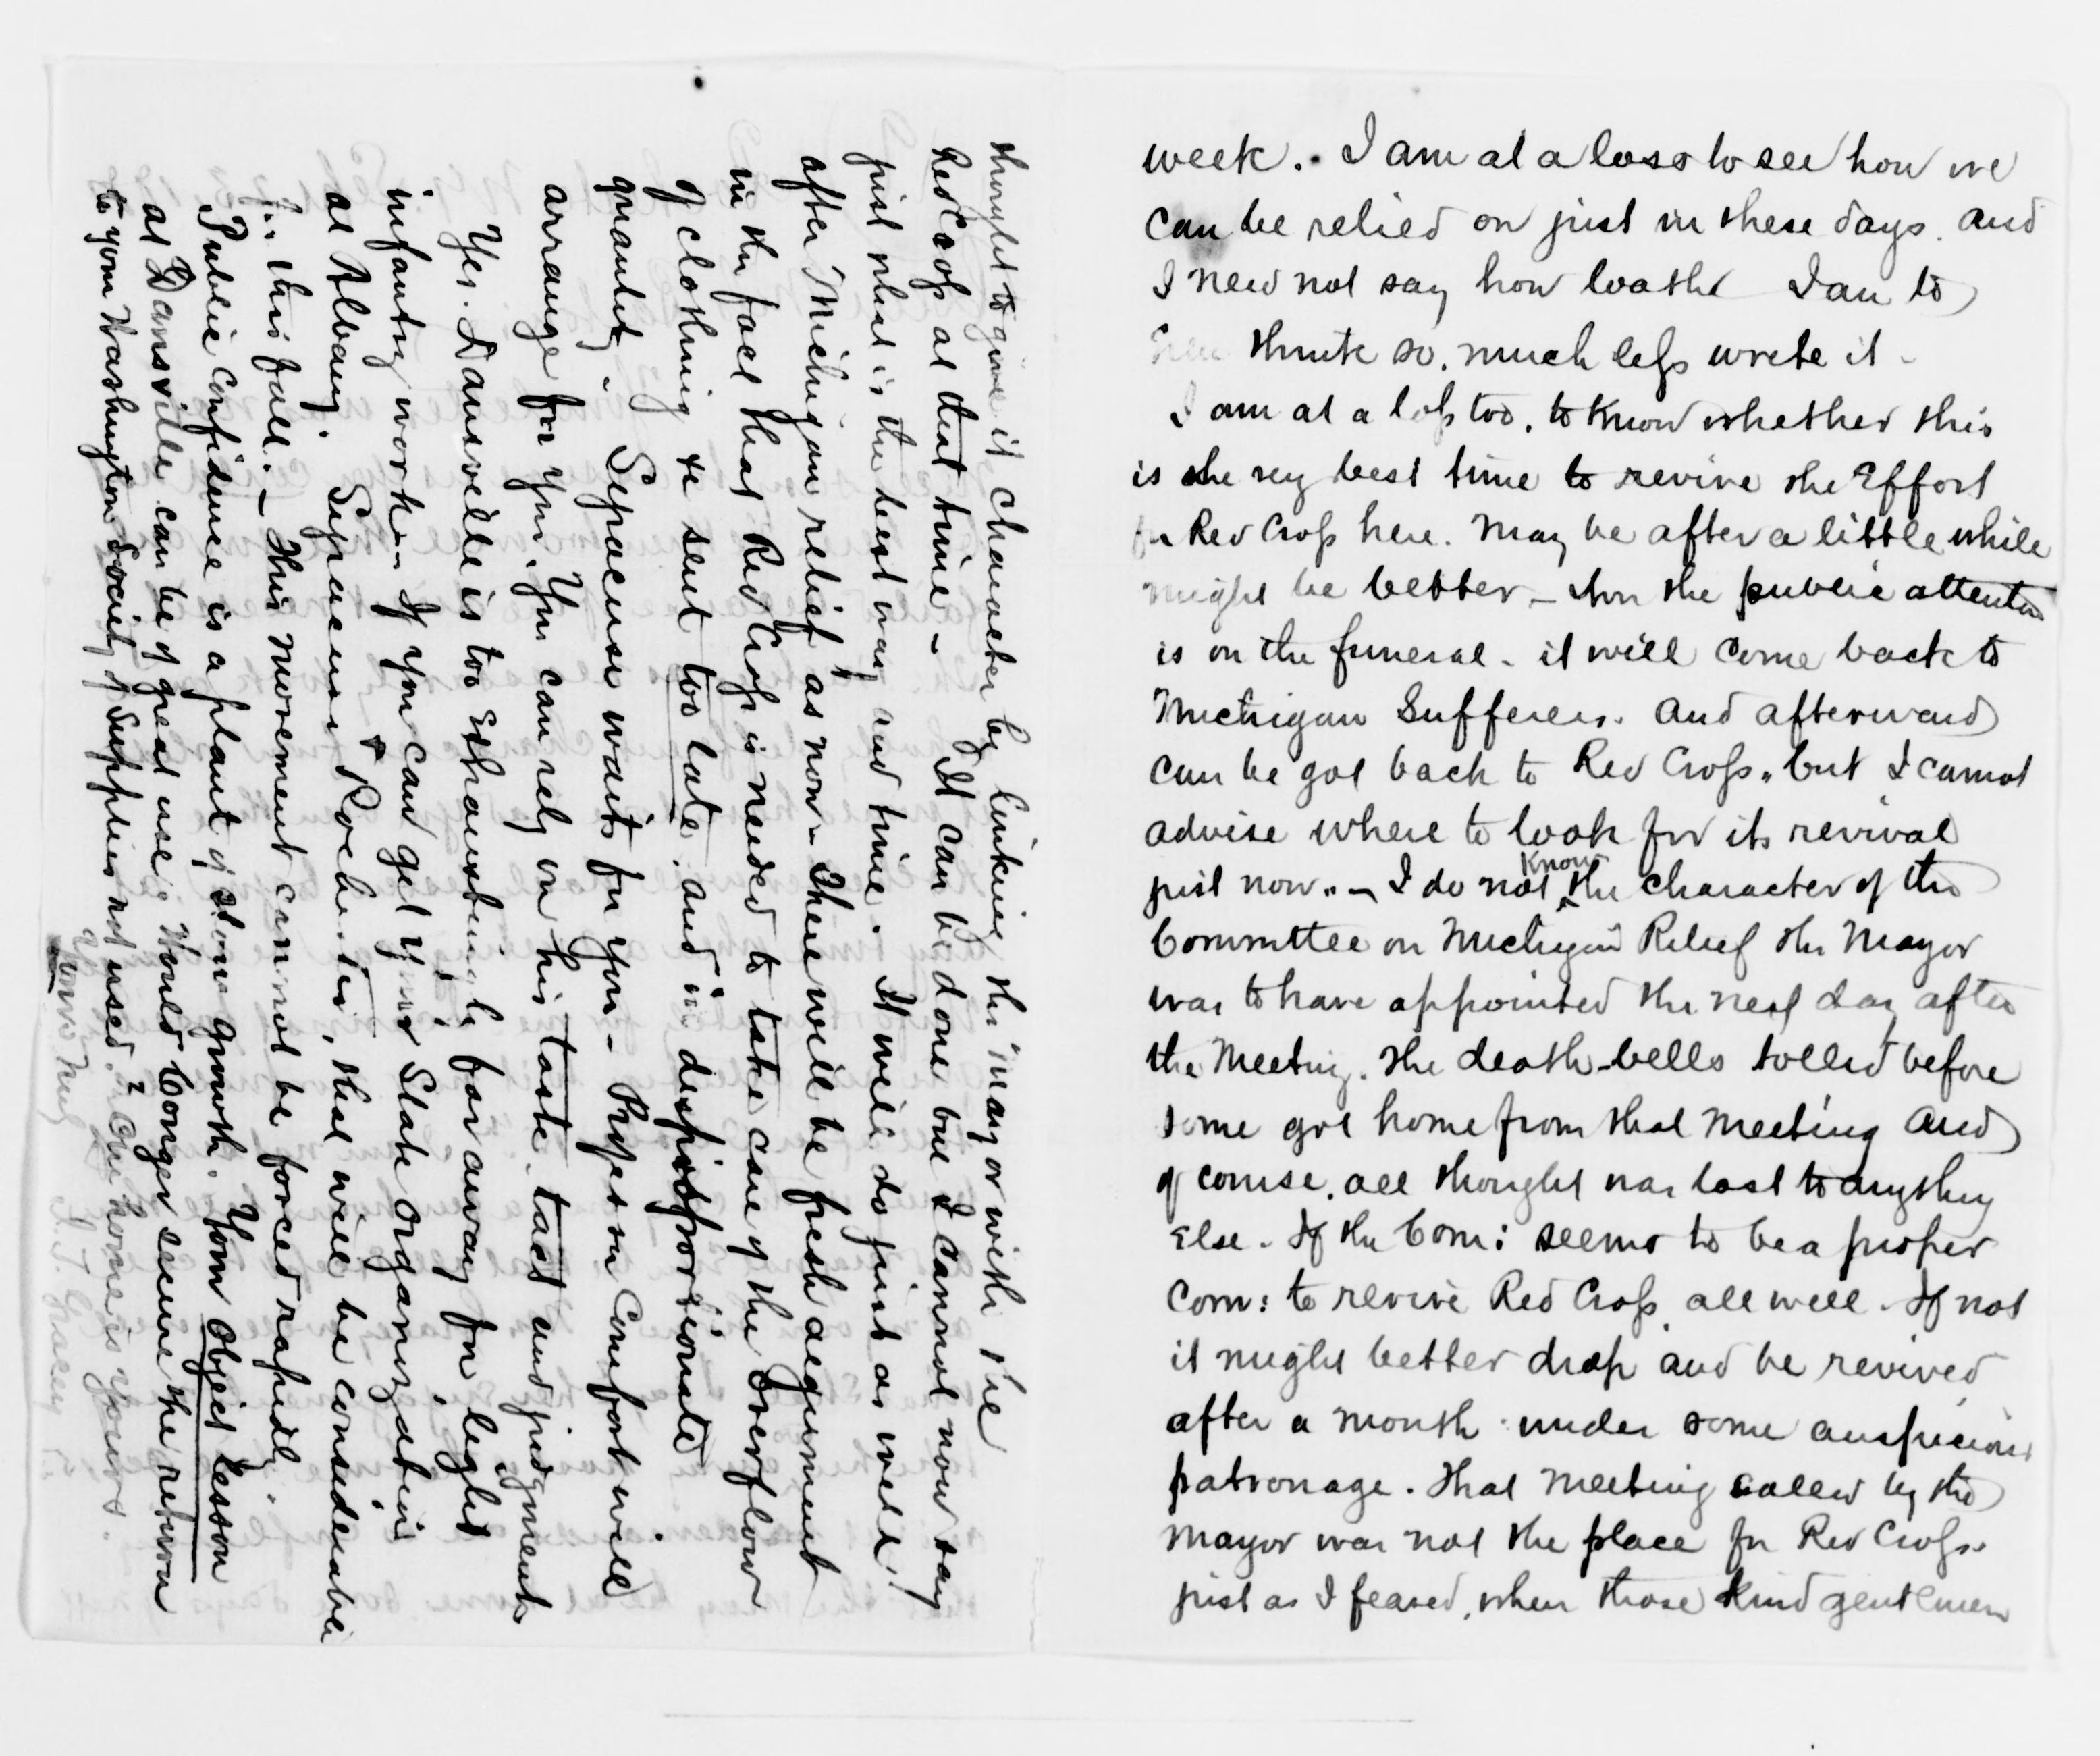 week. I am at a loss to see how we
can be relied on just in these days. and
I need not say how loathe I am to
think so, much less write it -
I am at a loss too, to know whether this
is the very best time to revive the Effort
for Red Cross here. May be after a little while
might be better - Now the public attention
is on the funeral - it will come back to
Michigan Sufferers. And afterward
can be got back to Red Cross, but I cannot
advise where to look for its revival
just now. - I do not know the character of the
Committee on Michigan Relief the Mayor
was to have appointed the next day after
the Meeting. The death-bells tolled before
some got home from that meeting and
of course, all thought was lost to anything
Else. If the Com: seems to be a proper
Com: to revive Red Cross, all well. If not
it might better drop and be revived
after a month under some auspicious
patronage. That meeting called by the
Mayor was not the place for Red Cross.
just as I feared, when those kind gentlemen
thought to give it character by linking the Mayor with the
Red Cross at that time - It can be done but I cannot now say
just what is the best way and time. It will do just as well
after Michigan relief as now - There will be fresh argument
in the fact that Red Cross is needed to take care of the Overflow
of clothing &c sent too late. and in disproportionate
quantity. Syracuse waits for you - Prof. 
arrange for you. You can rely on his taste, tact and judgment
Yes. Dansville is too Exhaustingly far away for light
infantry work - If you can get your State Organization
at Albany. Syracuse & Rochester, that will be considerable
for this fall. - This movement cannot be forced rapidly.
Public confidence is a plant of slow growth. Your Object Lesson
at Dansville can be of great use. Would Conger secure the return
to your Washington Society of Supplies not used? Our home is yours.
Yours Truly